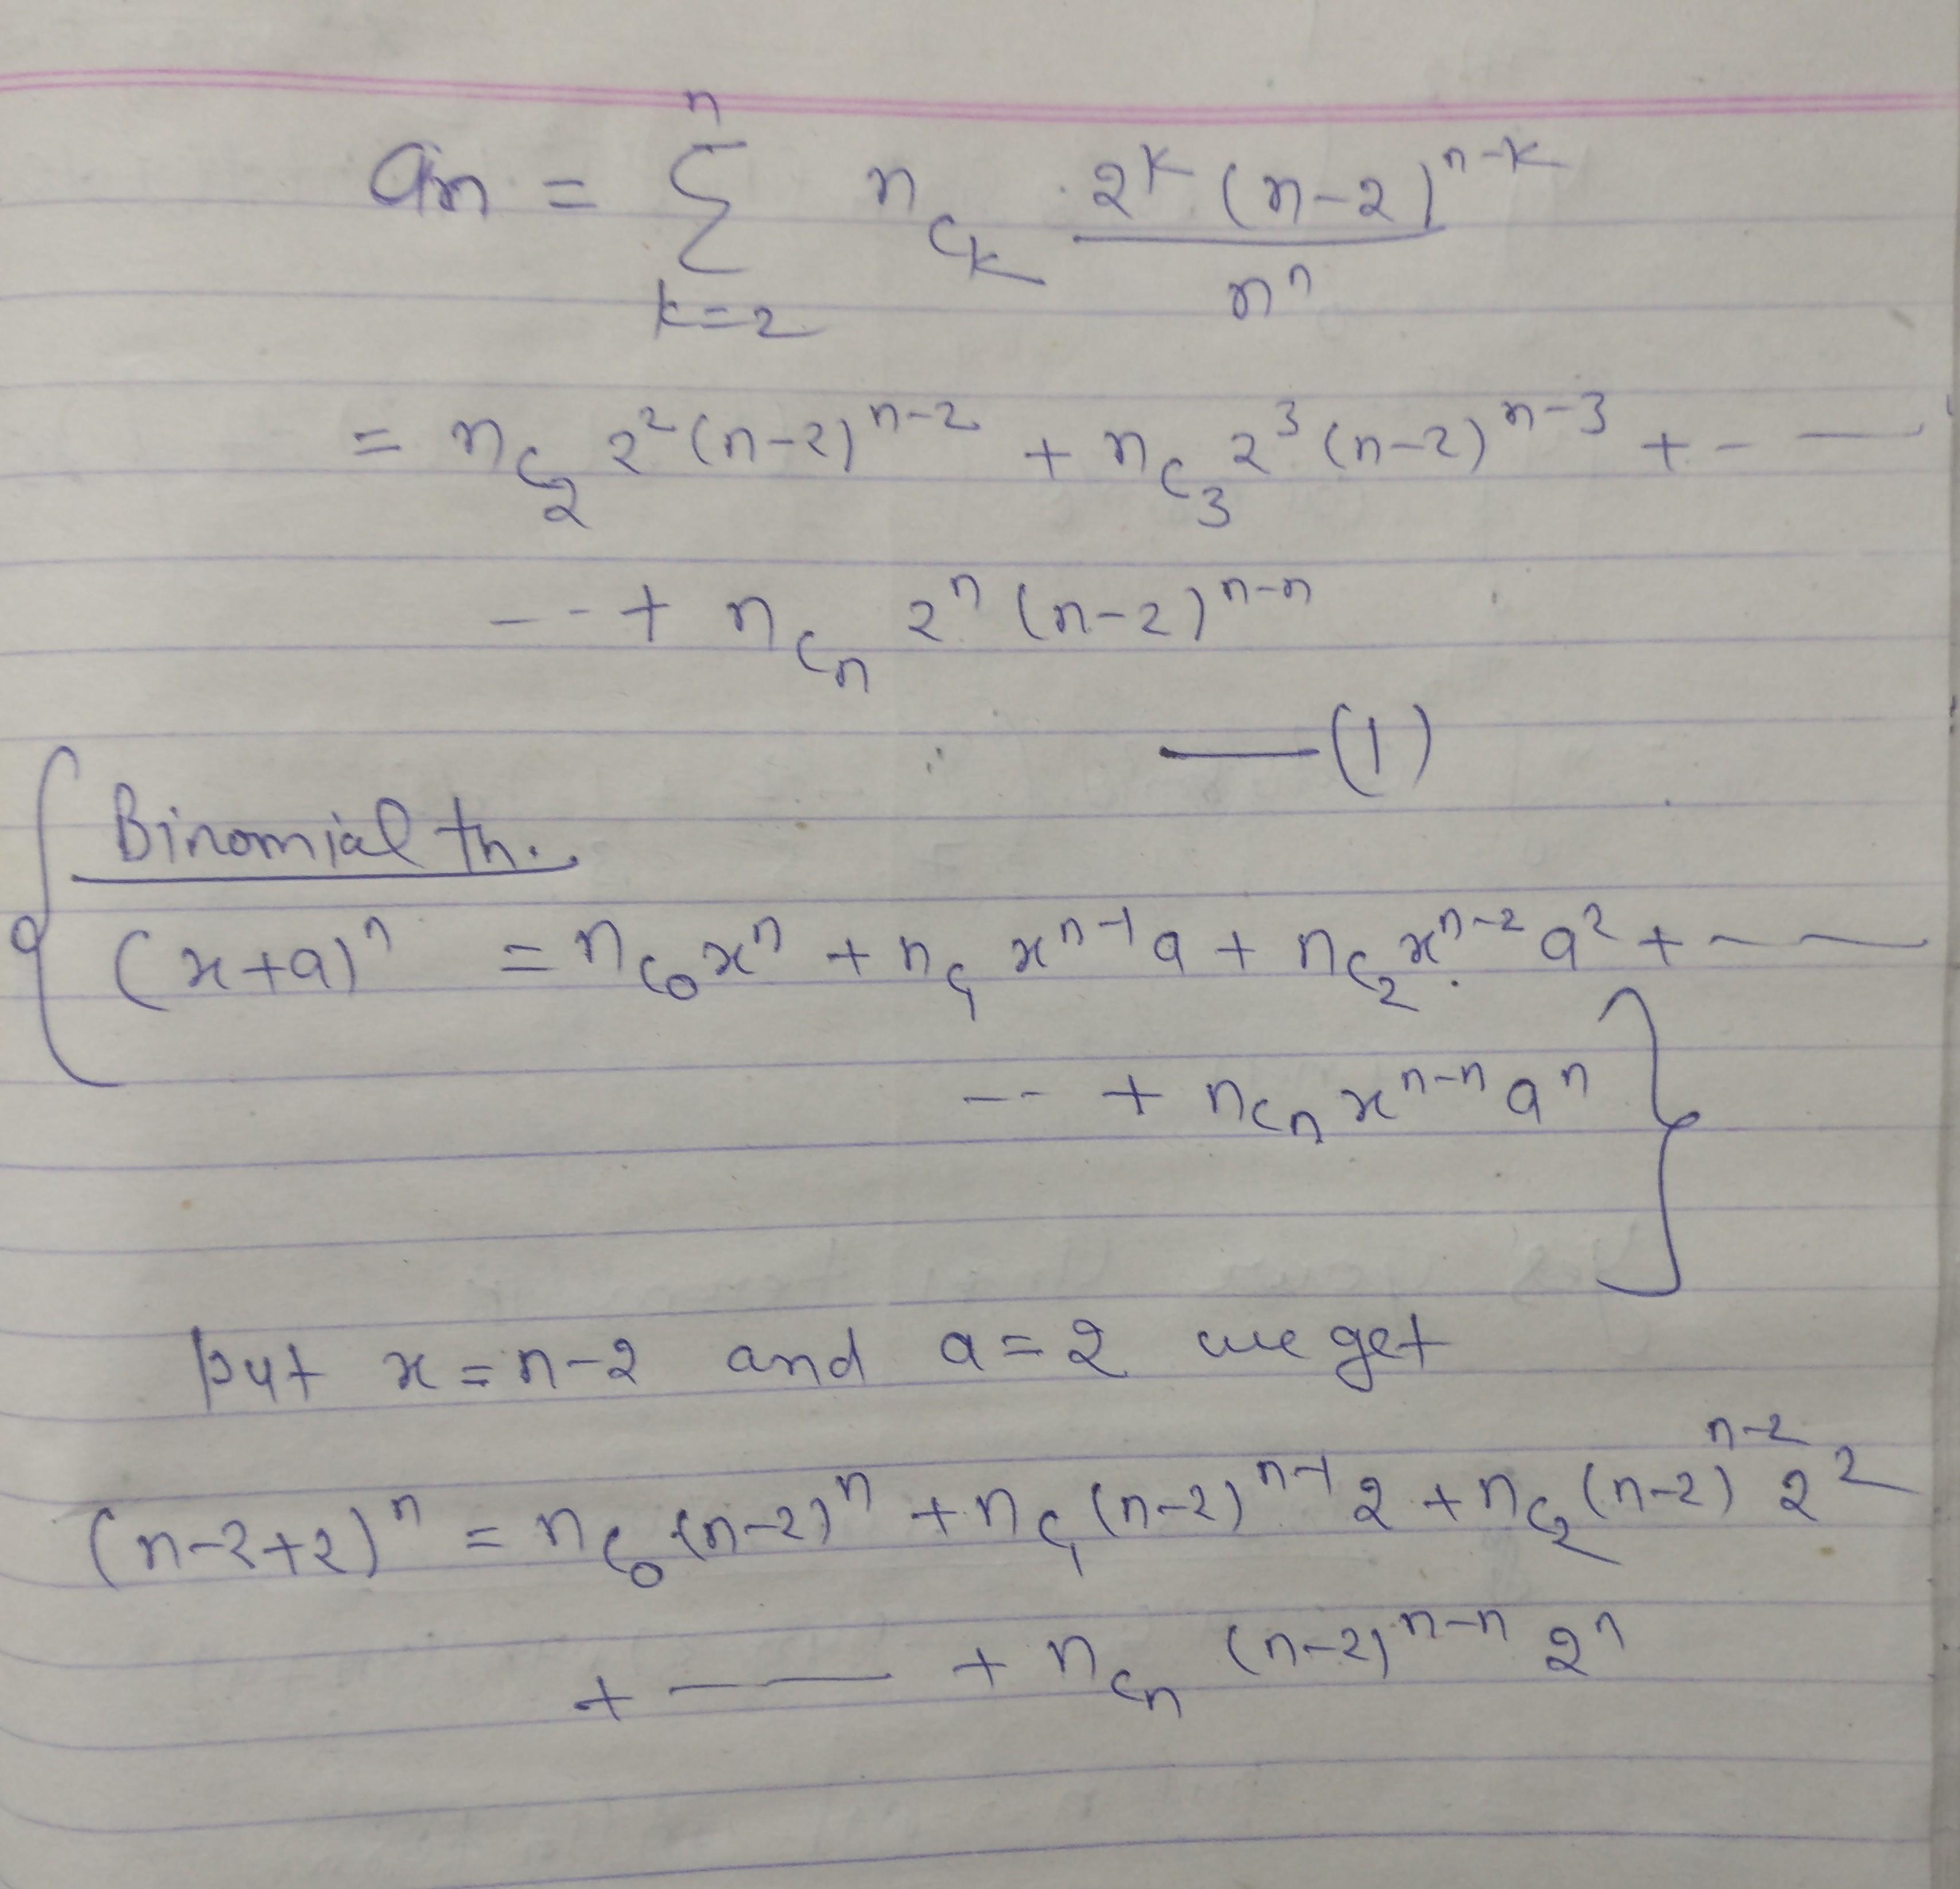 aₙ = Σ_{k=2}^{n} nCₖ · 2ᵏ (n-2)ⁿ⁻ᵏ / nⁿ
= nC₂ 2² (n-2)ⁿ⁻² + nC₃ 2³ (n-2)ⁿ⁻³ + - —
-- + nCₙ 2ⁿ (n-2)ⁿ⁻ⁿ
— (1)
{ Binomial th.
(x+a)ⁿ = nC₀ xⁿ + nC₁ xⁿ⁻¹ a + nC₂ xⁿ⁻² a² + - —
-- + nCₙ xⁿ⁻ⁿ aⁿ }
put x = n-2 and a = 2 we get
(n-2+2)ⁿ = nC₀ (n-2)ⁿ + nC₁ (n-2)ⁿ⁻¹ 2 + nC₂ (n-2)ⁿ⁻² 2²
+ - — + nCₙ (n-2)ⁿ⁻ⁿ 2ⁿ